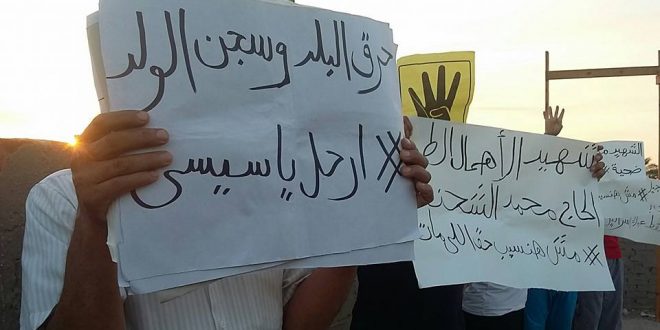 حرق البلد وسجن الولد
#ارحل ياسيسى
شهيد الأهمال الط
الحاج محمد الشحت
#مش هنسيب حق اللى مات
الشهيد
ضحية